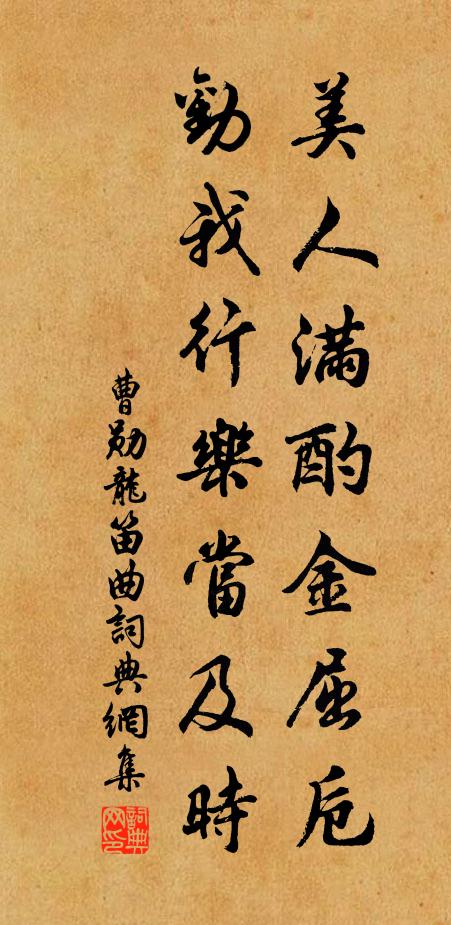 美人滿酌金屈卮
勸我行樂當及時
曹勛龍笛曲詞典網集
詞典网印